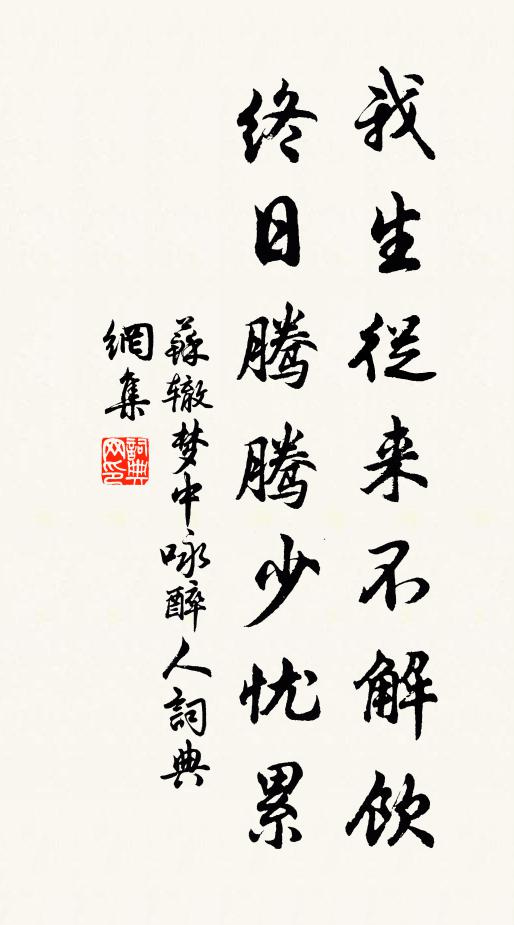 我生從来不解飲
终日腾腾少忧累
蘇辙梦中咏醉人詞典
網集
詞典
网印